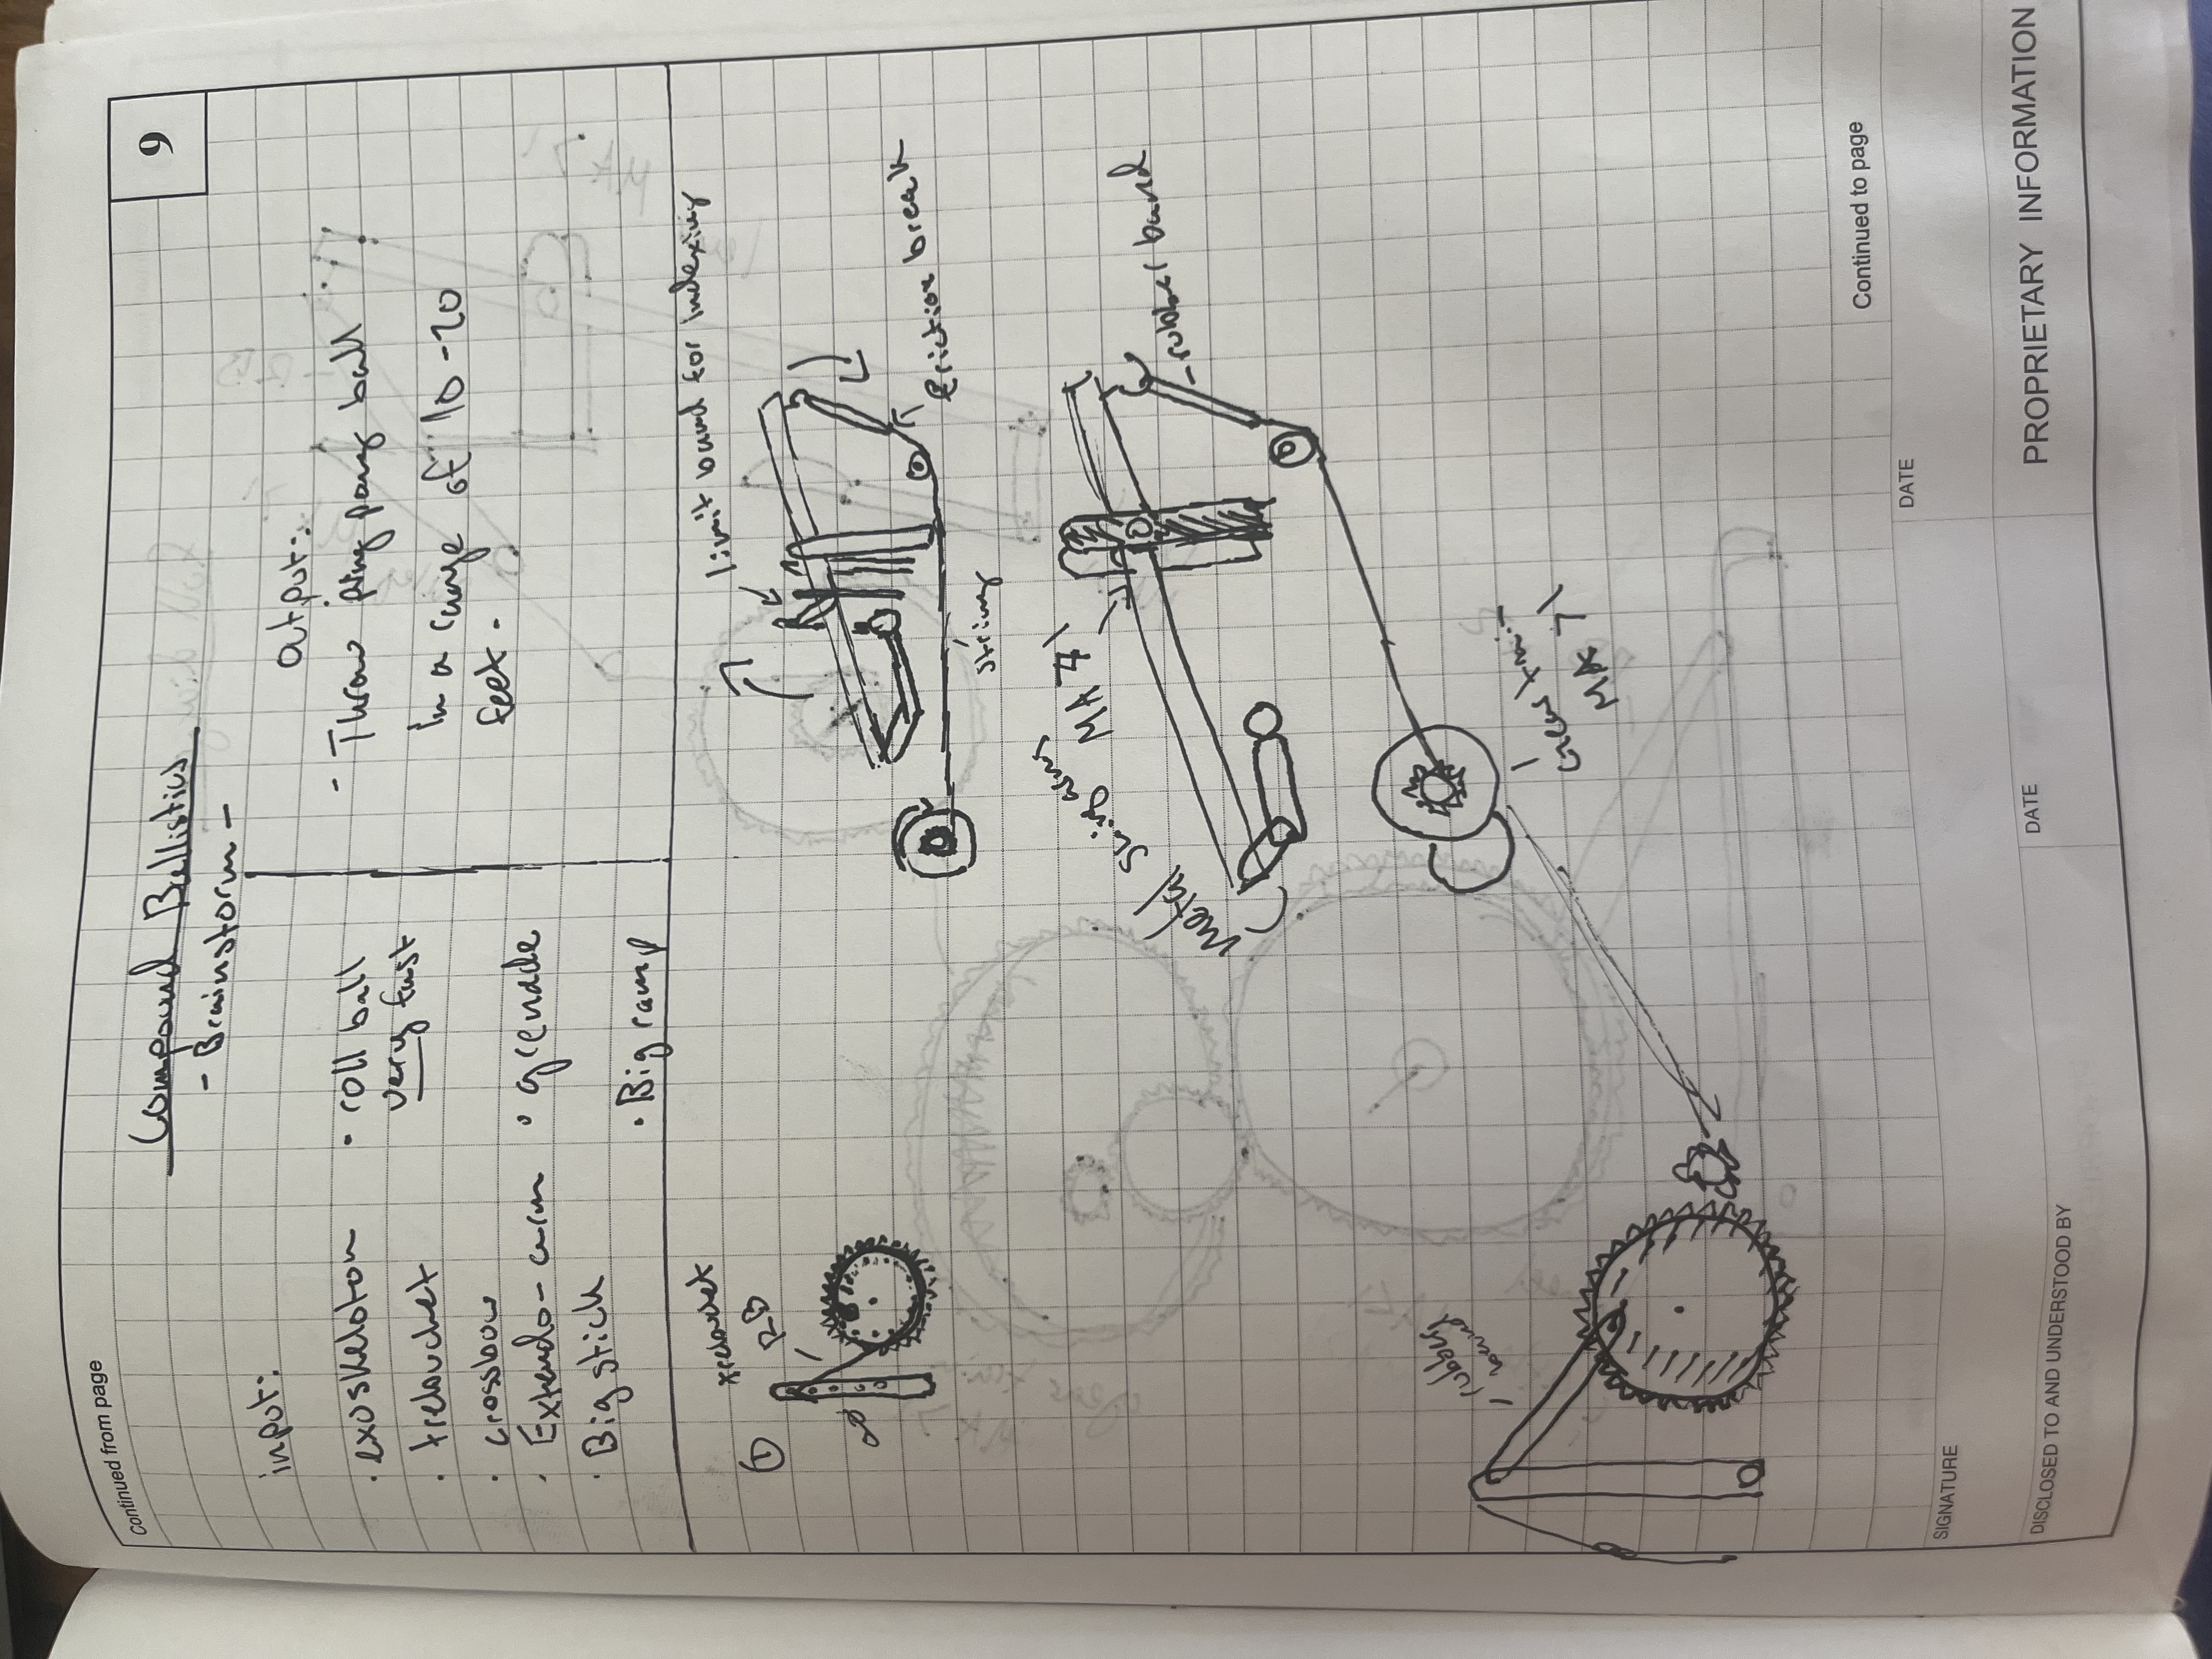 Continued from page
9
Compound Ballistics
- Brainstorm -
input:
· exoskeloton
· trebuchet
· crossbow
· Extendo-arm
· Big stick
· roll ball
very fast
· grenade
· Big ramp
output:
- Throw ping pong ball
in a range of 10-20
feet.
①
trebuchet
RB
limit band for indexing
friction break
string
metal swing arms
MA >1
rubber band
rubber
band
Gear train
MA >1
Continued to page
SIGNATURE
DATE
DISCLOSED TO AND UNDERSTOOD BY
DATE
PROPRIETARY INFORMATION